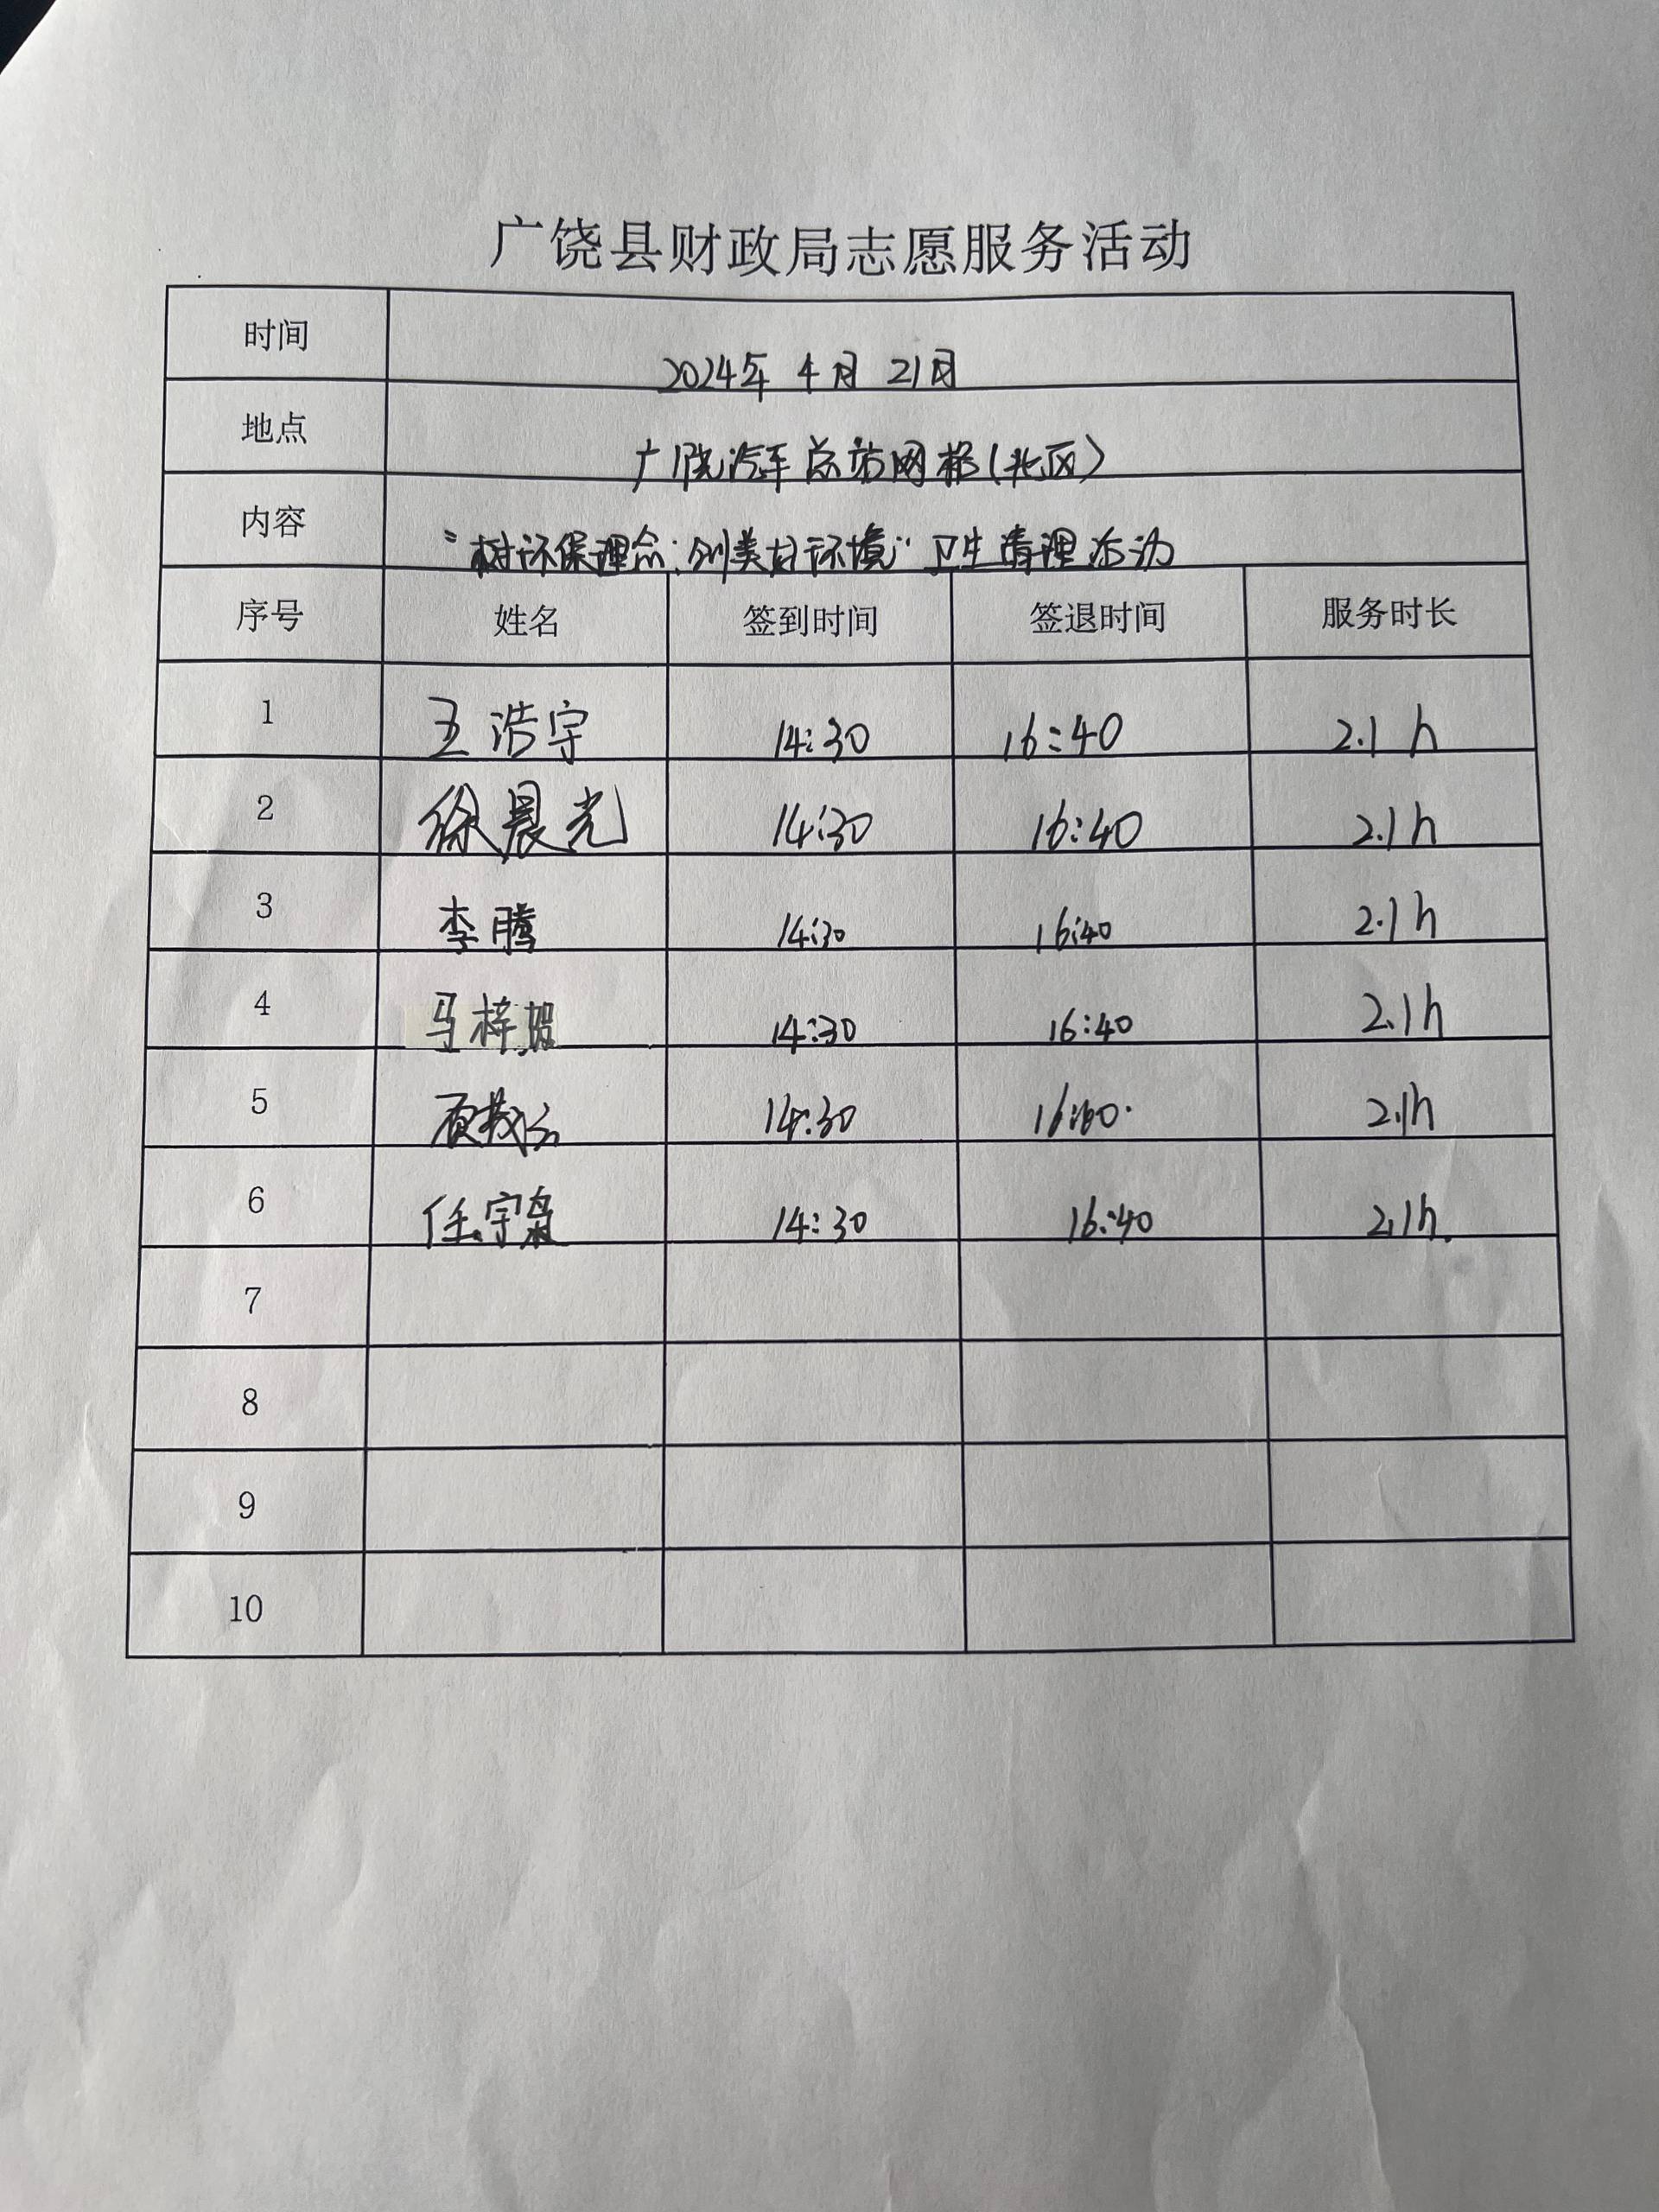 广饶县财政局志愿服务活动
时间 2024年 4月 21日
地点 广饶汽车总站网格(北区)
内容 "树环保理念,创美好环境"卫生清理活动
序号 姓名 签到时间 签退时间 服务时长
1 王浩宇 14:30 16:40 2.1 h
2 徐晨光 14:30 16:40 2.1h
3 李腾 14:30 16:40 2.1h
4 马梓 14:30 16:40 2.1h
5 14:30 2.1h
6 任宇 14:30 16:40 2.1h.
7
8
9
10